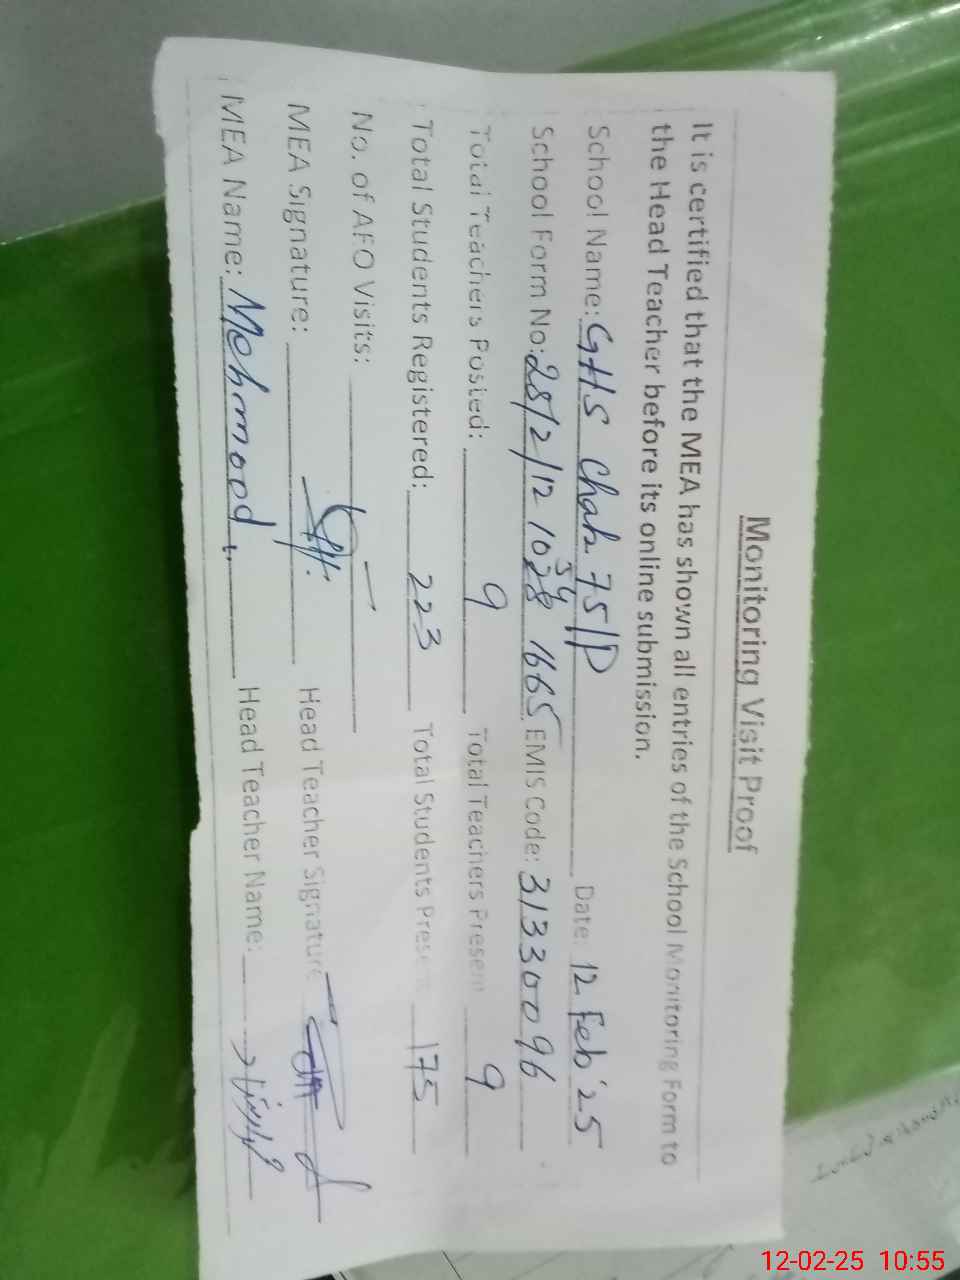 Monitoring Visit Proof
It is certified that the MEA has shown all entries of the School Monitoring Form to
the Head Teacher before its online submission.
School Name: GHS Chak 75/P Date: 12 Feb '25
School Form No: 28/2/12 1665 EMIS Code: 31330096
Total Teachers Posted: 9 Total Teachers Present 9
Total Students Registered: 223 Total Students Present 175
No. of AEO Visits: —
MEA Signature: Head Teacher Signature
MEA Name: Mehmood Head Teacher Name:
12-02-25 10:55